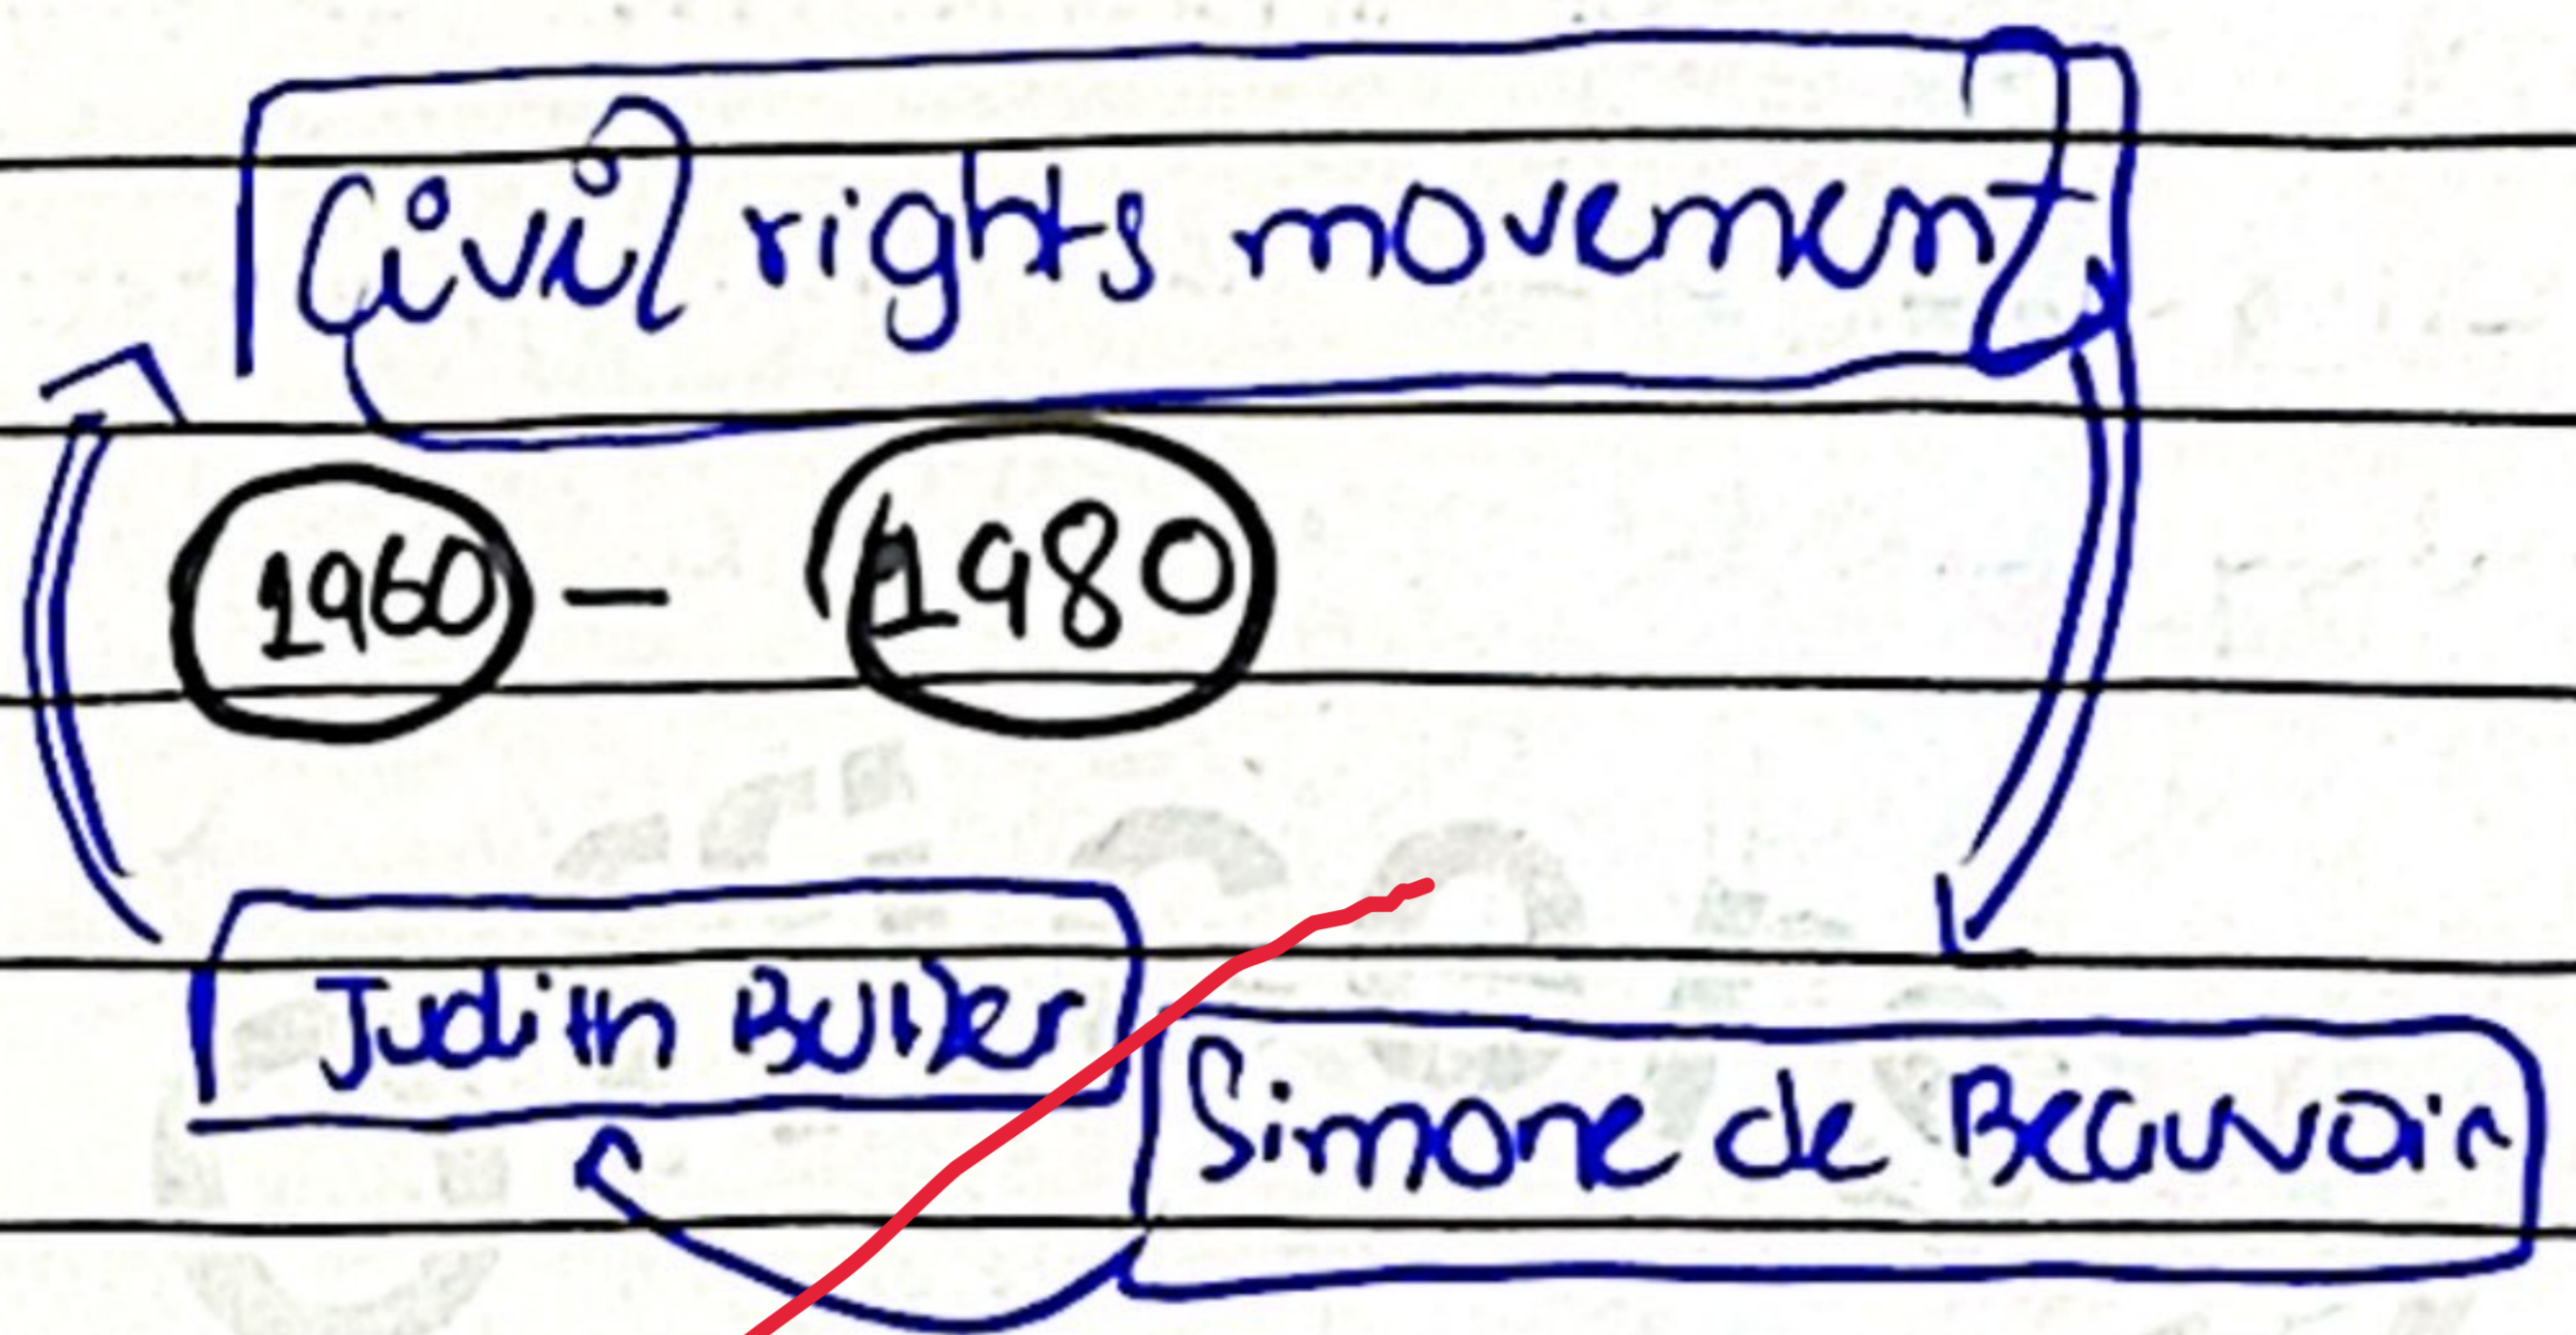 Civil rights movement
1960 - 1980
Judith Butler
Simone de Beauvoir